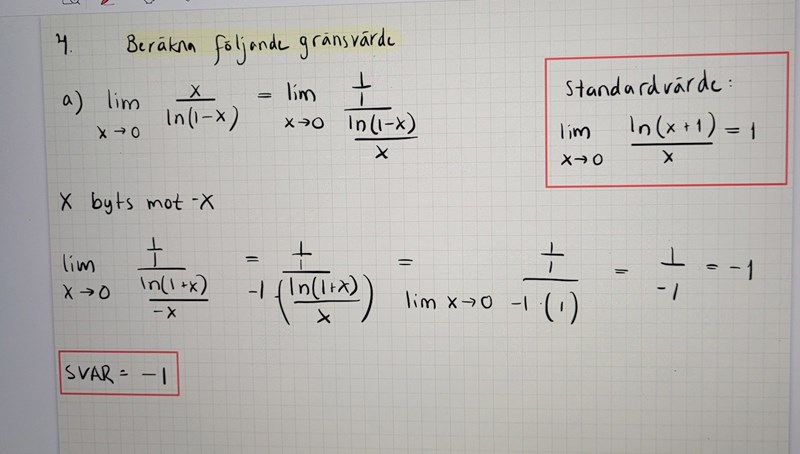 4. Beräkna följande gränsvärde
a) lim x→0 x / ln(1-x) = lim x→0 (1/1) / (ln(1-x) / x)
Standardvärde:
lim x→0 ln(x+1) / x = 1
X byts mot -X
lim x→0 (1/1) / (ln(1+x) / -x) = (1/1) / (-1 · (ln(1+x) / x)) = lim x→0 (1/1) / (-1 · (1)) = 1 / -1 = -1
SVAR = -1